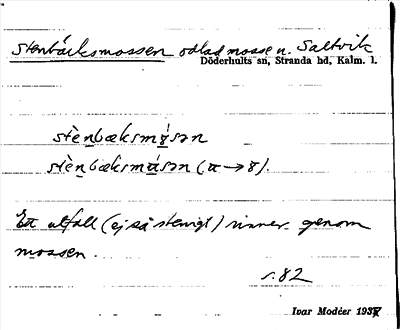 Stenbäcksmossen odlad mosse n. Saltvik
Döderhults sn, Stranda hd, Kalm. l.
stènbæksmɣ́sən
stènbæksmásən (a → ɣ).
Ett utfall (ej så stenigt) rinner genom
mossen.
s. 82
Ivar Modéer 193